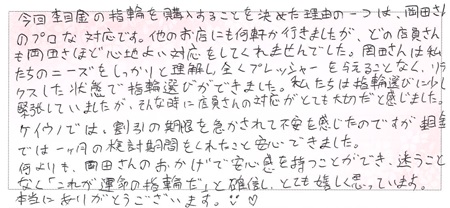 今回杢目金の指輪を購入することを決めた理由の一つは、岡田さん
のプロな対応です。他のお店にも何軒か行きましたが、どの店員さん
も岡田さんほど心地よい対応をしてくれませんでした。岡田さんは私
たちのニーズをしっかりと理解し、全くプレッシャーを与えることなく、リラ
クスした状態で指輪選びができました。私たちは指輪選びに少し
緊張していましたが、そんな時に店員さんの対応がとても大切だと感じました。
ケイウノでは、割引の期限を急かされて不安を感じたのですが、杢目金
では一ヶ月の検討期間をくれたこと安心できました。
何よりも、岡田さんのおかげで安心感を持つことができ、迷うこと
なく「これが運命の指輪だ」と確信し、とても嬉しく思っています。
本当にありがとうございます。